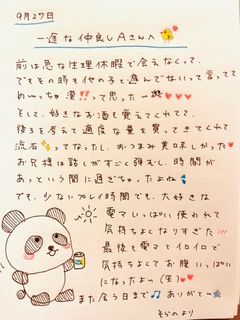 9月27日
一途な仲良しAさんへ
前は急な生理休暇で会えなくって、
でもその時も他の子と遊んでないって言ってて
めいっちゃ漢!!って思ったぃ
そして、好きなお酒も覚えてくれてて
後を考えて適度な量を買ってきてくれて
流石ってなったし、おつまみ美味しかった
お兄様は話しがすごく弾むし、時間が
あっという間に過ぎちゃったよね
でも、少ないプレイ時間でも、大好きな
電マいっぱい使われて
気持ちよくなりすぎた!!!
最後も電マとイロイロで
気持ちよくてお腹いっぱい
になったよー(笑)
また会う日まで ありがとー
そらのより